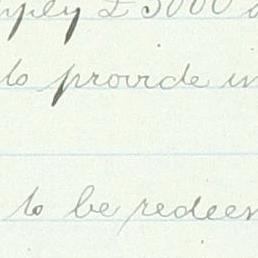 £5000
to provide in
to be redeem